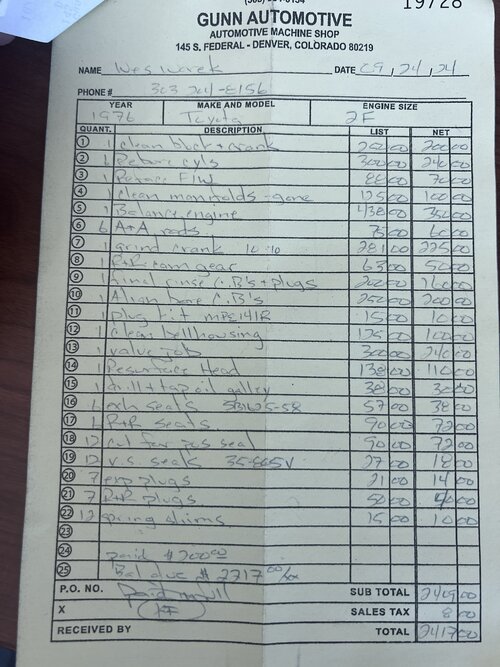 19728
GUNN AUTOMOTIVE
AUTOMOTIVE MACHINE SHOP
145 S. FEDERAL - DENVER, COLORADO 80219
NAME DATE 09, 24, 24
PHONE # 303 204-8156
YEAR MAKE AND MODEL ENGINE SIZE
1976 Toyota 2F
QUANT. DESCRIPTION LIST NET
1 1 clean block + crank 250 00 200 00
2 6 Rebore cyls 300 00 240 00
3 1 Reface F/W 70 00
4 1 clean manifolds - gone 125 00 100 00
5 1 Balance engine 438 00 350 00
6 6 A+A rods 75 00 60 00
7 1 grind crank 10 10 281 00 225 00
8 1 R+R cam gear 63 00 50 00
9 1 final rinse C.B's + plugs 200 00 160 00
10 1 Align bore C.B's 250 00 200 00
11 1 plug kit MPE141R 15 00 10 00
12 1 clean bellhousing 125 00 100 00
13 1 valve job 300 00 240 00
14 1 Resurface Head 138 00 110 00
15 1 drill + tap oil galley 38 00 30 00
16 6 exh seats 57 00 38 00
17 6 R+R seats 90 00 72 00
18 12 cut for pos seal 90 00 72 00
19 12 v.s. seals 27 00 18 00
20 7 exp plugs 21 00 14 00
21 7 R+R plugs 50 00 40 00
22 12 spring shims 15 00 10 00
23
24 paid $200 00
25 Bal due $ 2217 00
P.O. NO. SUB TOTAL 2409 00
X SALES TAX 8 00
RECEIVED BY TOTAL 2417 00